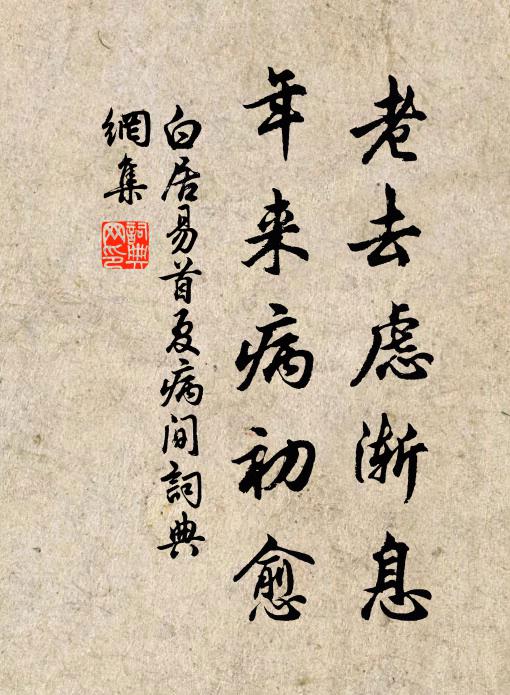 老去虑渐息
年来病初愈
白居易首夏病间詞典
網集
詞典
网印